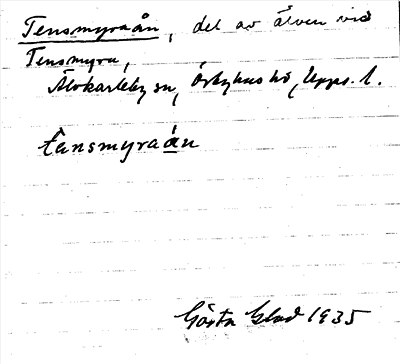 Tensmyraån, del av älven vid
Tensmyra,
Älvkarleby sn, Örbyhus hd, Upps. l.
tensmyraá̱n
Gösta Glad 1935